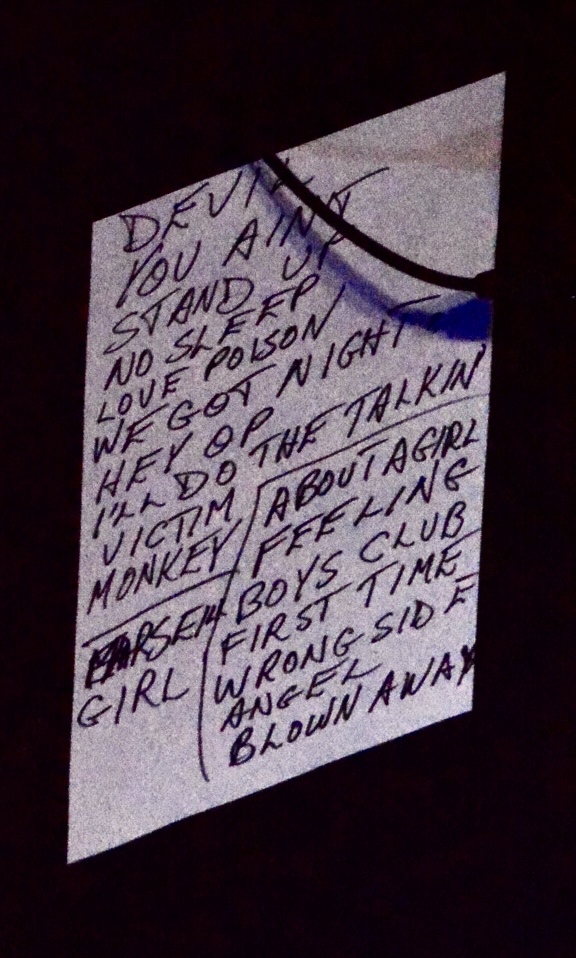 DEVIL
YOU AIN'T
STAND UP
NO SLEEP
LOVE POISON
WE GOT NIGHT
HEY OP
I'LL DO THE TALKIN'
VICTIM
MONKEY
GIRL
ABOUT A GIRL
FEELING
BOYS CLUB
FIRST TIME
WRONG SIDE
ANGEL
BLOWN AWAY